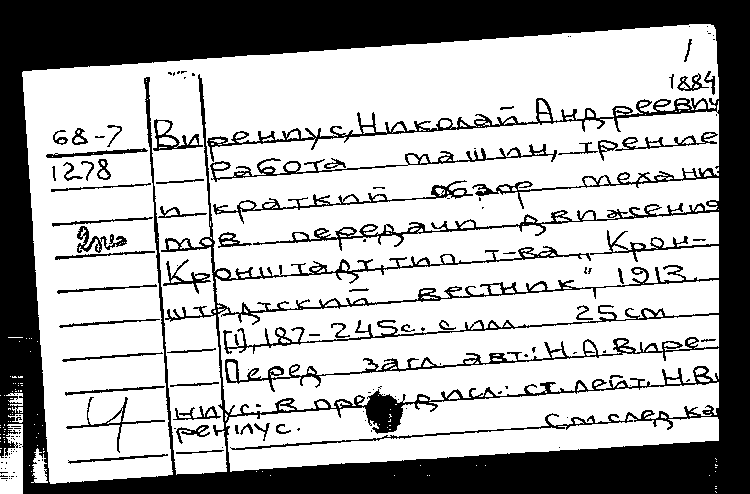 1
1884
68-7
Виренiус, Николай Андреевич
1278
Работа машин, трение
и краткий обзор механиз
2
мов передачи движения
Кронштадт, тип. т-ва „Крон-
штадтский вестник", 1913.
[1], 187-245с. с илл. 25см
Перед загл. авт.: Н.А.Вире-
нiус; в предисл.: ст. лейт. Н.Ви
ренiус.
См. след. ка
Ч